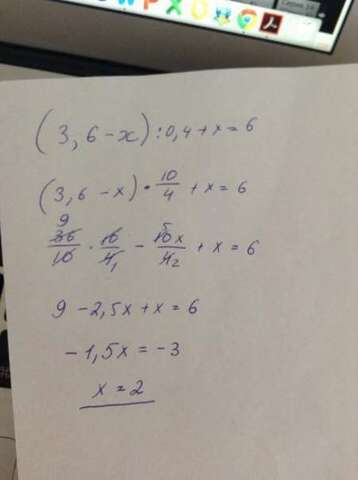 (3,6-x):0,4+x=6
(3,6-x)•10/4+x=6
9
36/10•10/4 1-5 10x/4 2+x=6
9-2,5x+x=6
-1,5x=-3
x=2